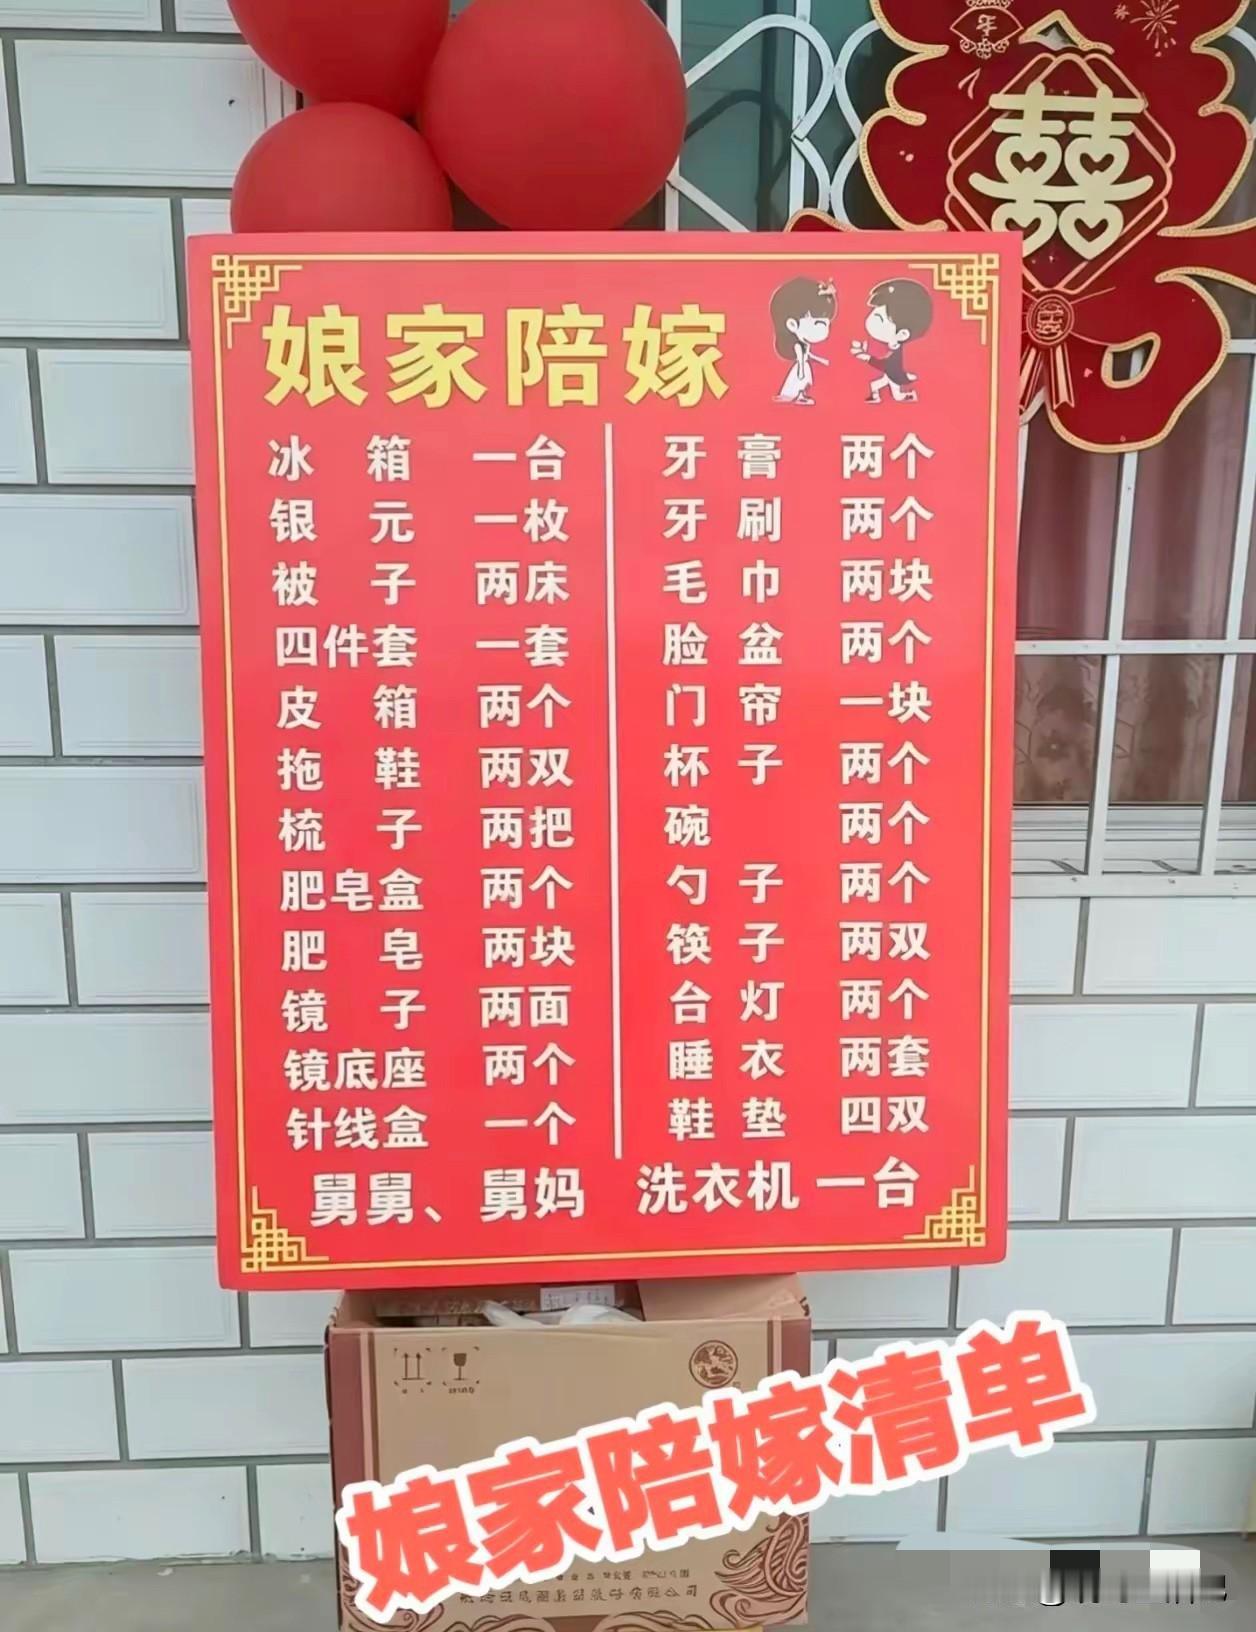 年
囍
娘家陪嫁
冰箱 一台
银元 一枚
被子 两床
四件套 一套
皮箱 两个
拖鞋 两双
梳子 两把
肥皂盒 两个
肥皂 两块
镜子 两面
镜底座 两个
针线盒 一个
牙膏 两个
牙刷 两个
毛巾 两块
脸盆 两个
门帘 一块
杯子 两个
碗 两个
勺子 两个
筷子 两双
台灯 两个
睡衣 两套
鞋垫 四双
舅舅、舅妈 洗衣机一台
娘家陪嫁清单